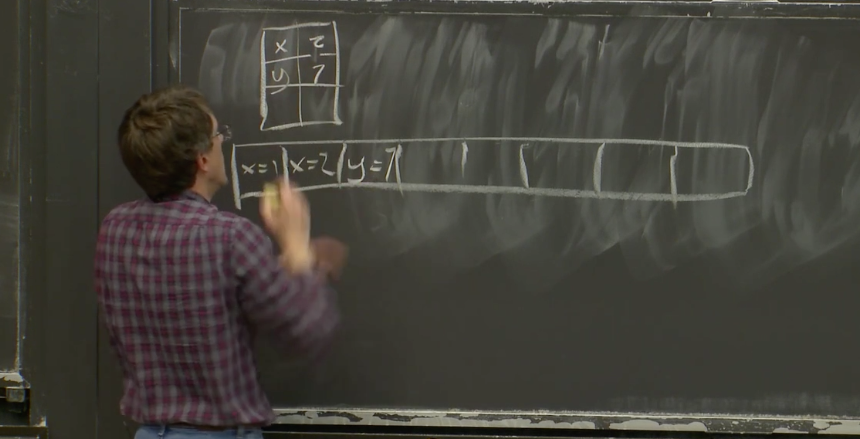 x 2
y 7
x=1 x=2 y=7